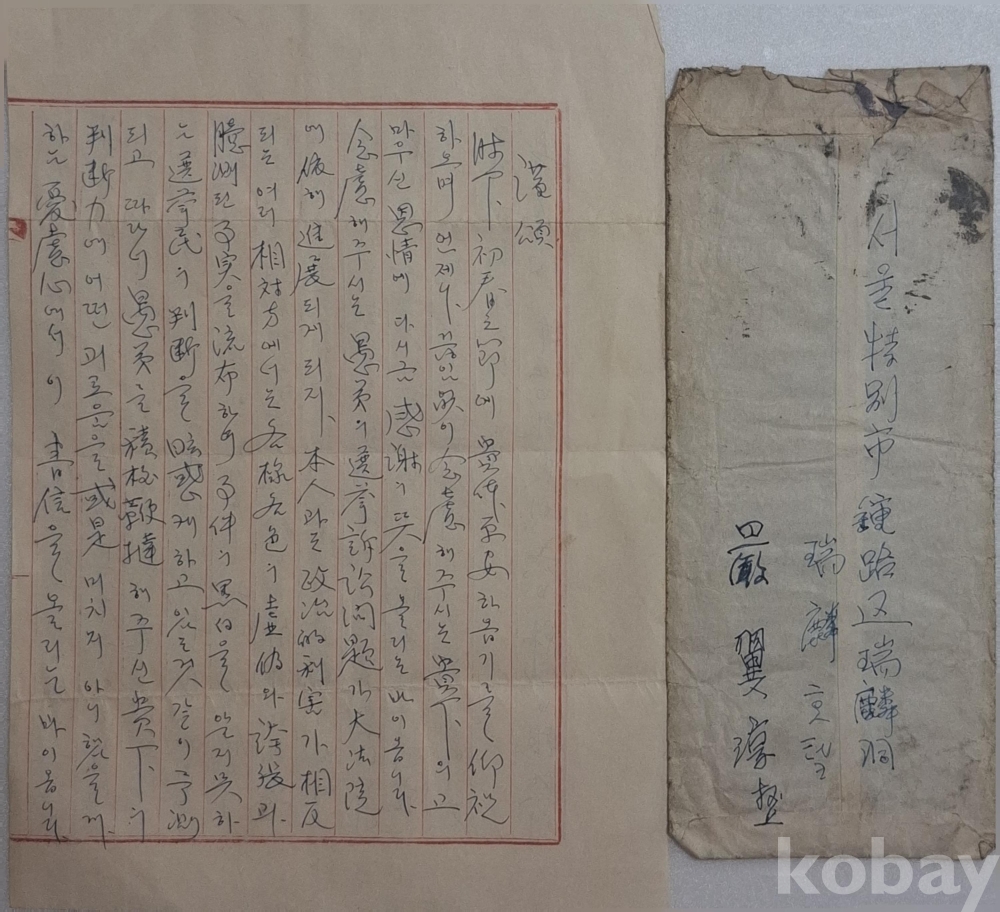 謹頌
時下 初春之節에 貴体平安하옵기를 仰祝
하오며 언제나 끊임없이 念慮해주시는 貴下의 고
마우신 恩情에 다시금 感謝의 뜻을 올리는 바이옵니다.
念慮해주시는 愚弟의 選擧訴訟問題가 大法院
에 依해 進展되게 되자, 本人과는 政治的利害가 相反
되는 여러 相対方에서는 各樣各色의 虛偽와 誇張과
臆測된 事実을 流布하여 事件의 黑白을 알지 못하
는 選擧民의 判斷을 眩惑케 하고 있는것 같이 推測
되고 따라서 愚弟를 積極鞭撻해주신 貴下의
判斷力에 어떤 괴로움을 或是 미치지 아니 했을까
하는 憂慮心에서 이 書信을 올리는 바이옵니다.
서울特別市 鍾路区 瑞麟洞
瑞麟
嚴翼
kobay